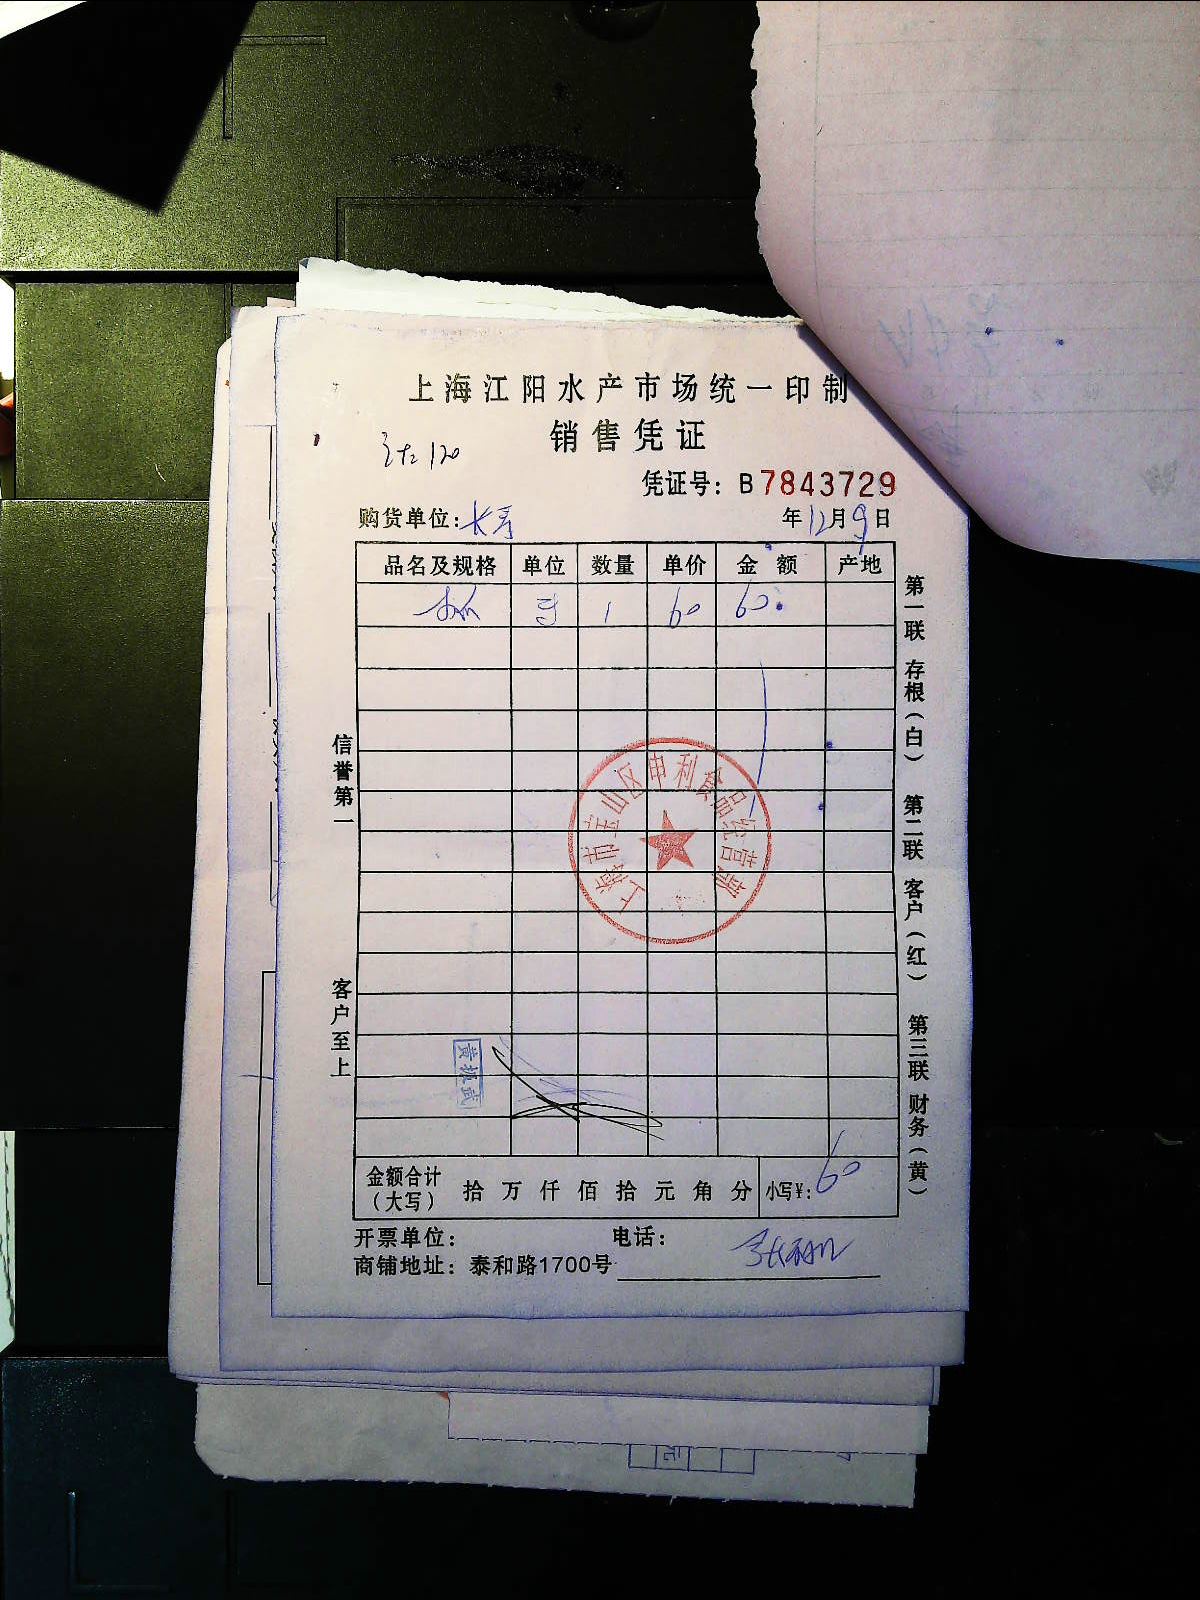 上海江阳水产市场统一印制
销售凭证
120
凭证号：B7843729
购货单位：长寿
年12月9日
品名及规格 单位 数量 单价 金额 产地
1 60 60
信誉第一
客户至上
第一联 存根（白） 第二联 客户（红） 第三联 财务（黄）
上海市宝山区申利食品经营部
黄振武
金额合计（大写） 拾万仟佰拾元角分 小写¥：60
开票单位： 电话：
商铺地址：泰和路1700号